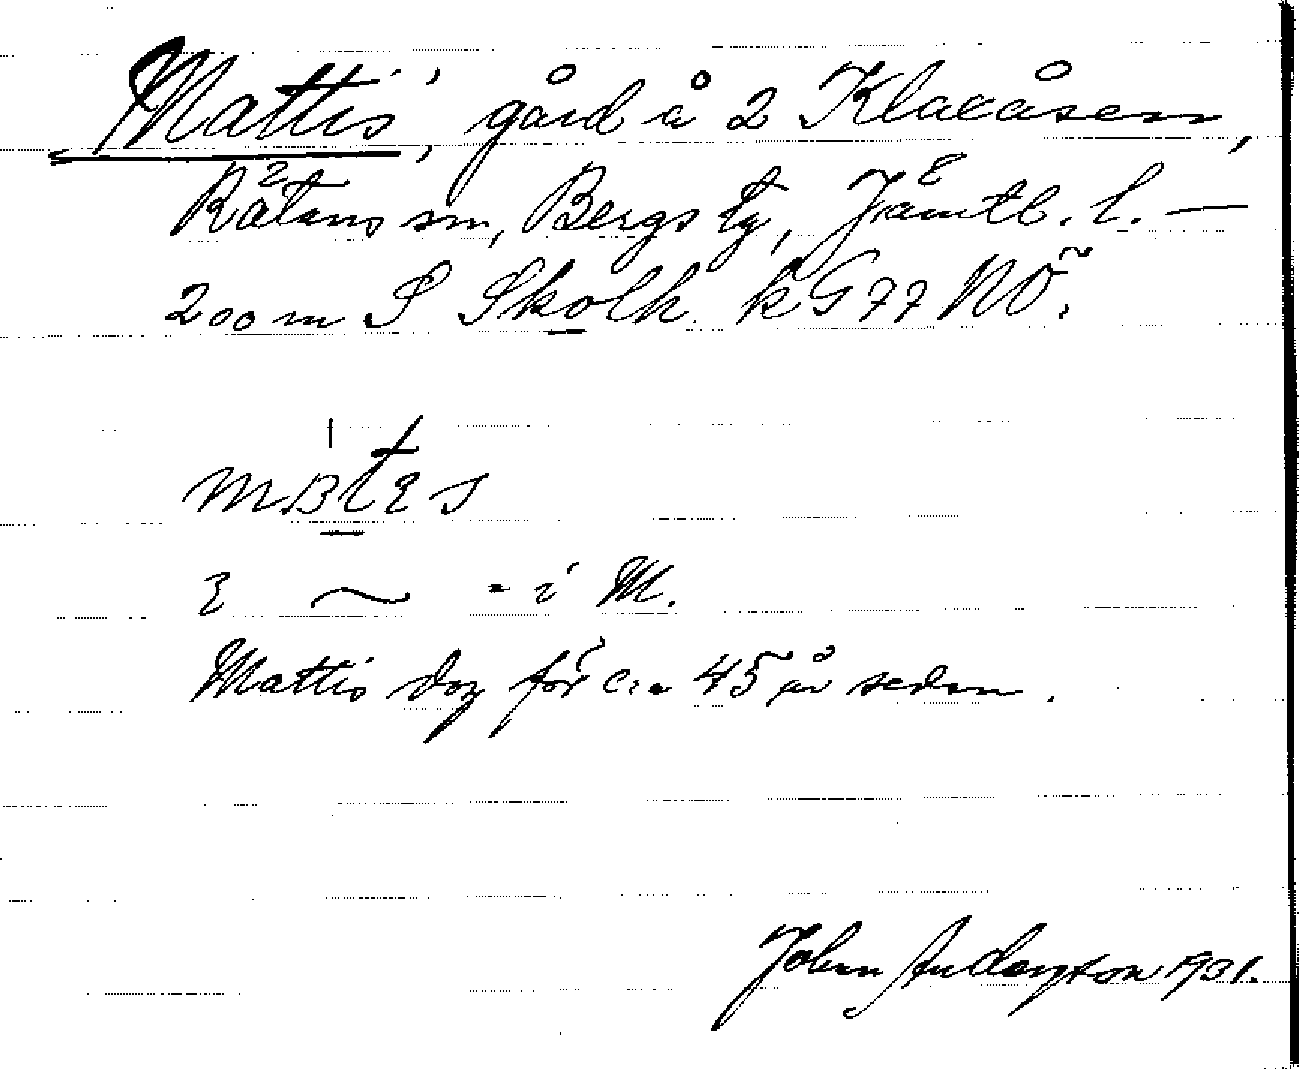 Mattis, gård å 2 Klaxåsen,
Rätans sn, Bergs tg, Jämtl. l. —
200 m S Skolh. k G 77 NÖ.
i M.
Mattis dog för c:a 45 år sedan.
John Anderzton 1931.